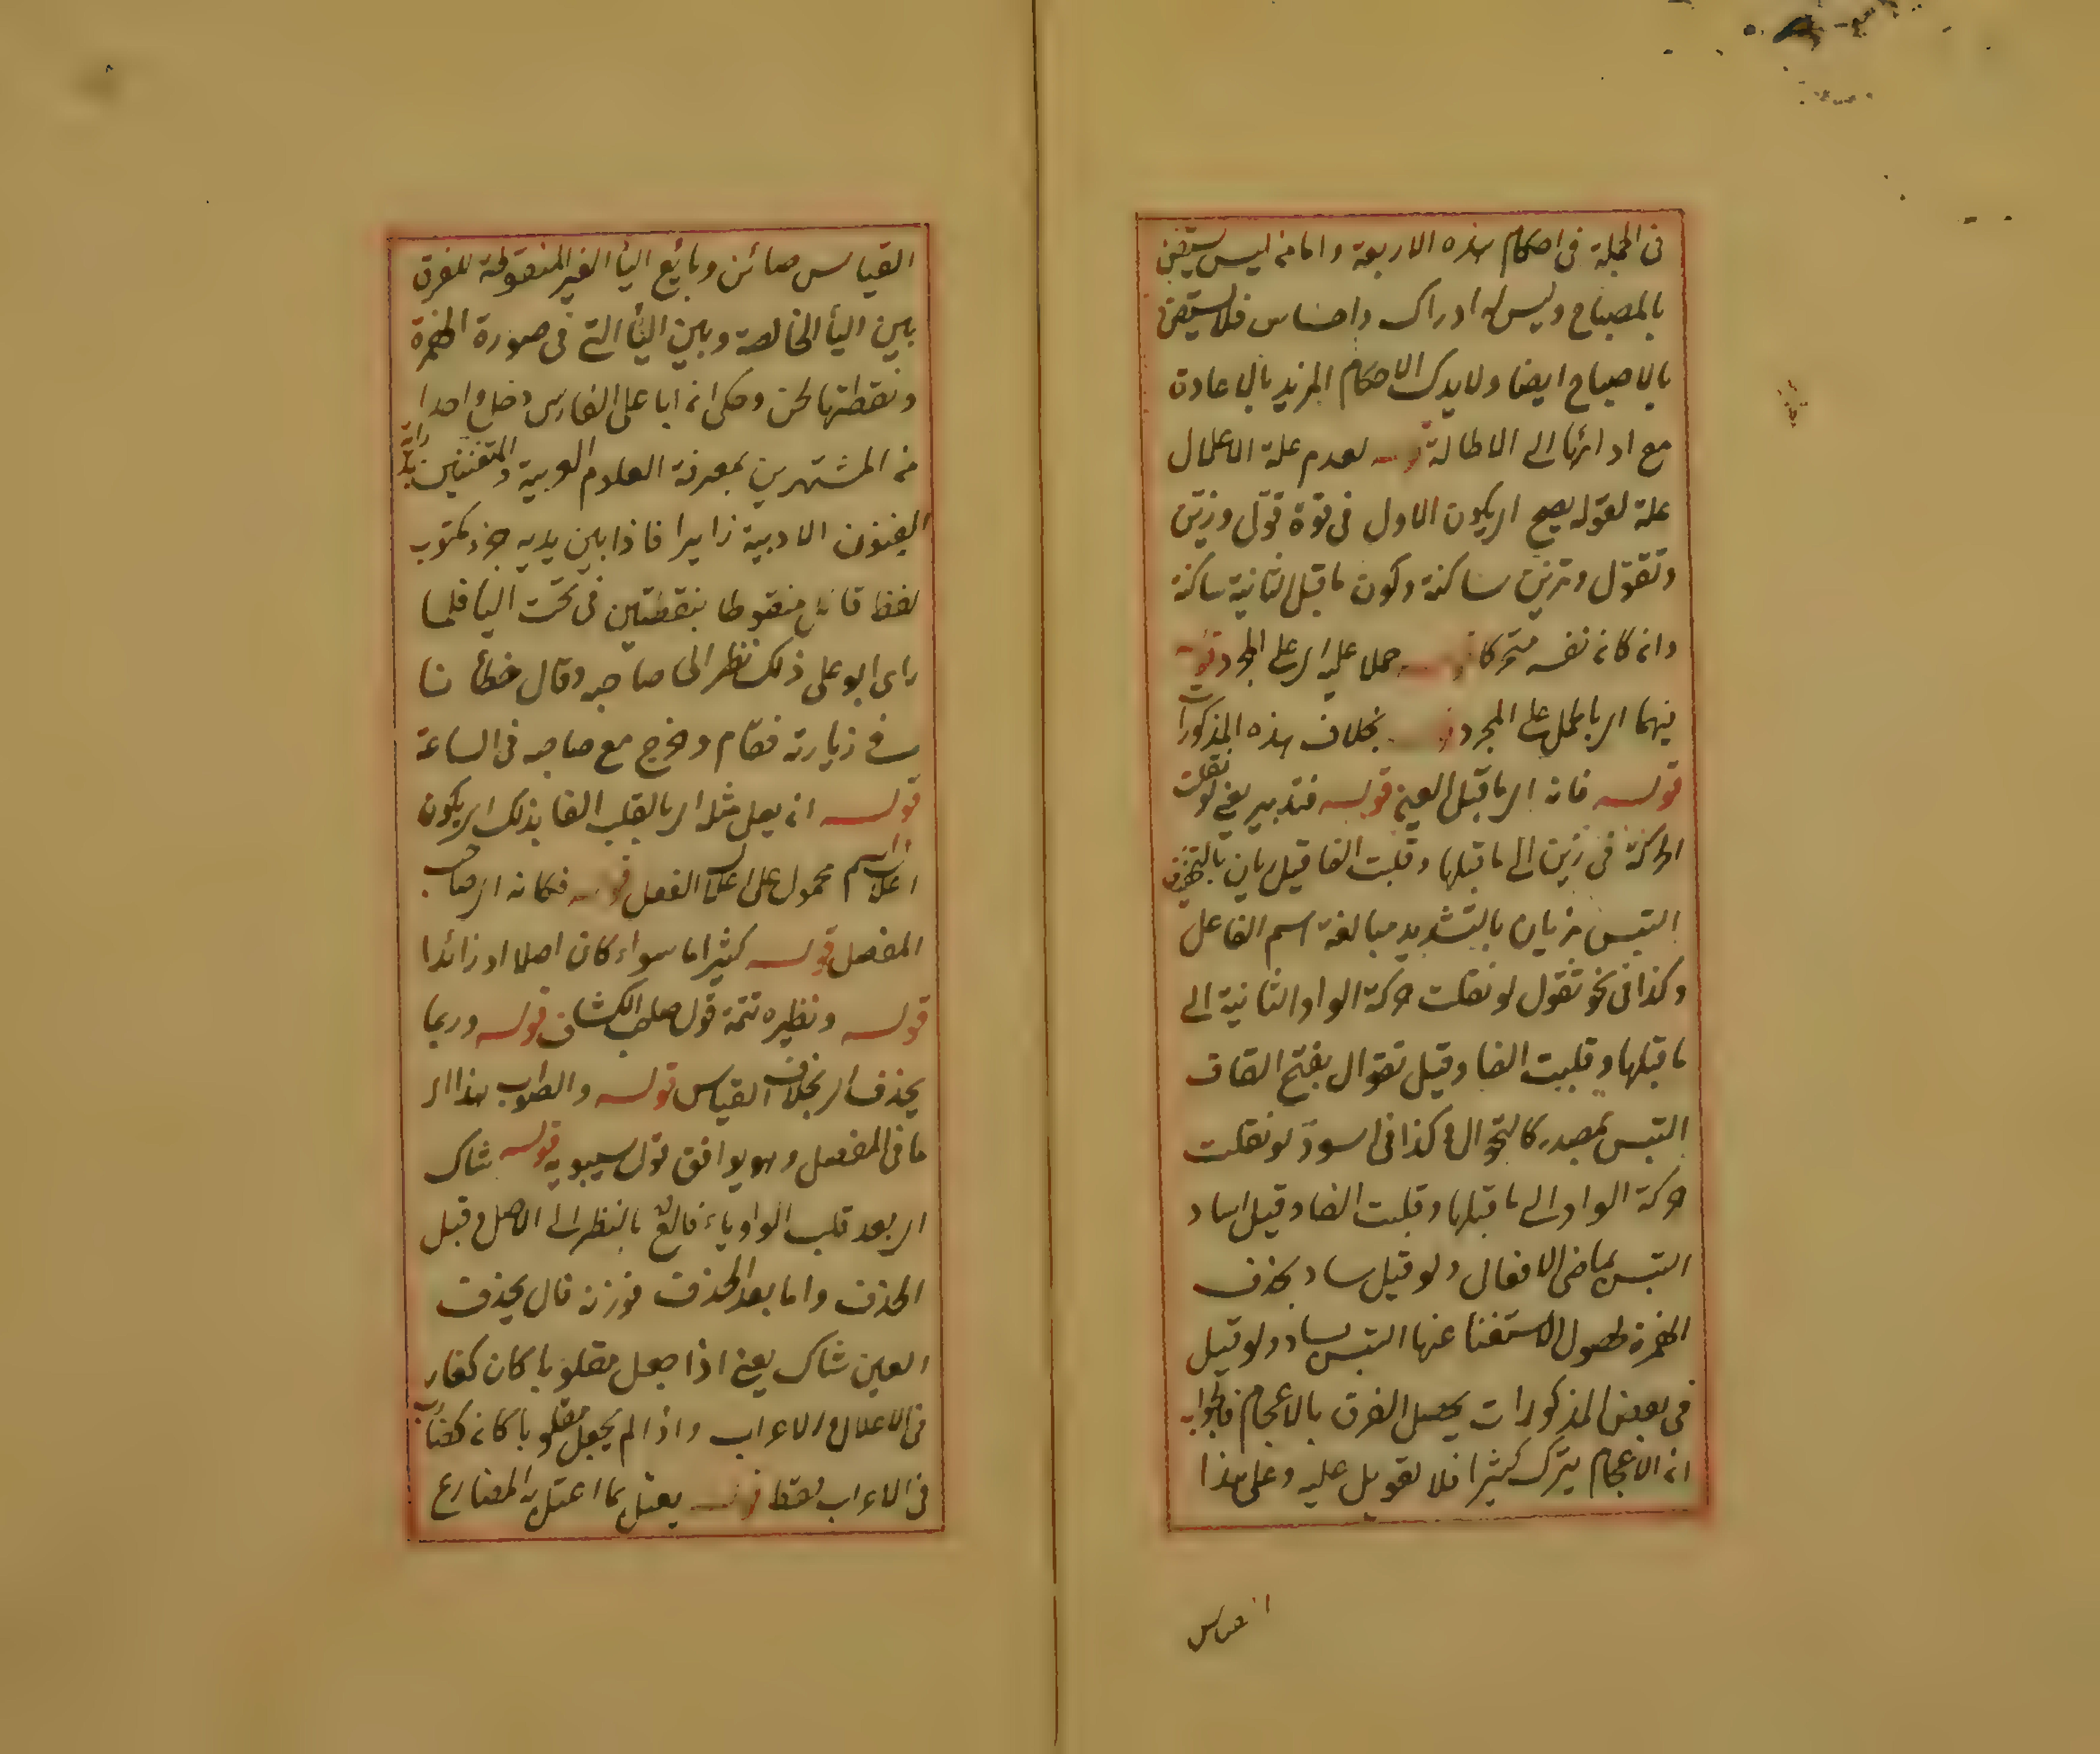 فى الجملة فى احكام هذه الاربعة واما من ليس يستضئ
بالمصباح وليس له ادراك واحساس فلا يستضئ
بالاصباح ايضا ولا يدرك الاحكام المزيد بالاعادة
مع ادائها الى الاطالة قوله لعدم علة الاعلال
علة لقوله يصح اى يكون الاول فى قوة قول وزين
وتقول وتزين ساكنة وكون ما قبل الثانية ساكنة
وان كان نفسه متحركا قوله حملا عليه اى على المجرد قوله
فيهما اى بالحمل على المجرد قوله بخلاف هذه المذكورات
قوله فان اى ما قبل العين قوله فتدبر يعنى لو نقلت
الحركة فى زين الى ما قبلها وقلبت الفا قيل يان بالتخفيف
التبس بزيان بالتشديد مبالغة اسم الفاعل
وكذا فى نحو تقول لو نقلت حركة الواو الثانية الى
ما قبلها وقلبت الفا وقيل تقوال بفتح القاف
التبس بمصدر كالتجوال وكذا فى اسود لو نقلت
حركة الواو الى ما قبلها وقلبت الفا وقيل اساد
التبس بماضى الافعال ولو قيل ساد بحذف
الهمزة لحصول الاستغنا عنها التبس بساد ولو قيل
فى بعض المذكورات يحصل الفرق بالاعجام فالجواب
ان الاعجام يترك كثيرا فلا تعويل عليه وعلى هذا
القياس
القياس صائن وبائع اليأ الغير المنقوطة للفرق
بين اليأ الخالصة وبين اليأ التى فى صورة الهمزة
ونقطتها لحن وحكى ان ابا على الفارسى دخل واحدا
من المشتهرين بمعرفة العلوم العربية والمتفننين
الفنون الادبية زايرا فاذا بين يديه جزء مكتوب
لفظ قائل منقوطا بنقطتين فى تحت اليا فلما
راى ابو على ذلك نظر الى صاحبه وقال خطأنا
فى زيارته فقام وخرج مع صاحبه فى الساعة
قوله ان يعل مثله اى بالقلب الفا بذلك اى يكون
اعلال اسم محمول على اعلال الفعل قوله فكانه اى صاحب
المفصل قوله كثيرا ما سواء كان اصلا او زائدا
قوله ونظيره تتمة قول صاحب الكشاف قوله وربما
يحذف اى بخلاف القياس قوله والصواب هذا اى
ما فى المفصل وهو يوافق قول سيبويه قوله شاك
اى بعد قلب الواو ياء فالع بالنظر الى الاصل وقبل
الحذف واما بعد الحذف فوزنه فال بحذف
العين شاك يعنى اذا جعل مقلوبا كان كغاز
فى الاعلال والاعراب واذا لم يجعل مقلوبا كان
فى الاعراب فقط قوله يعتل بما اعتل به المضارع